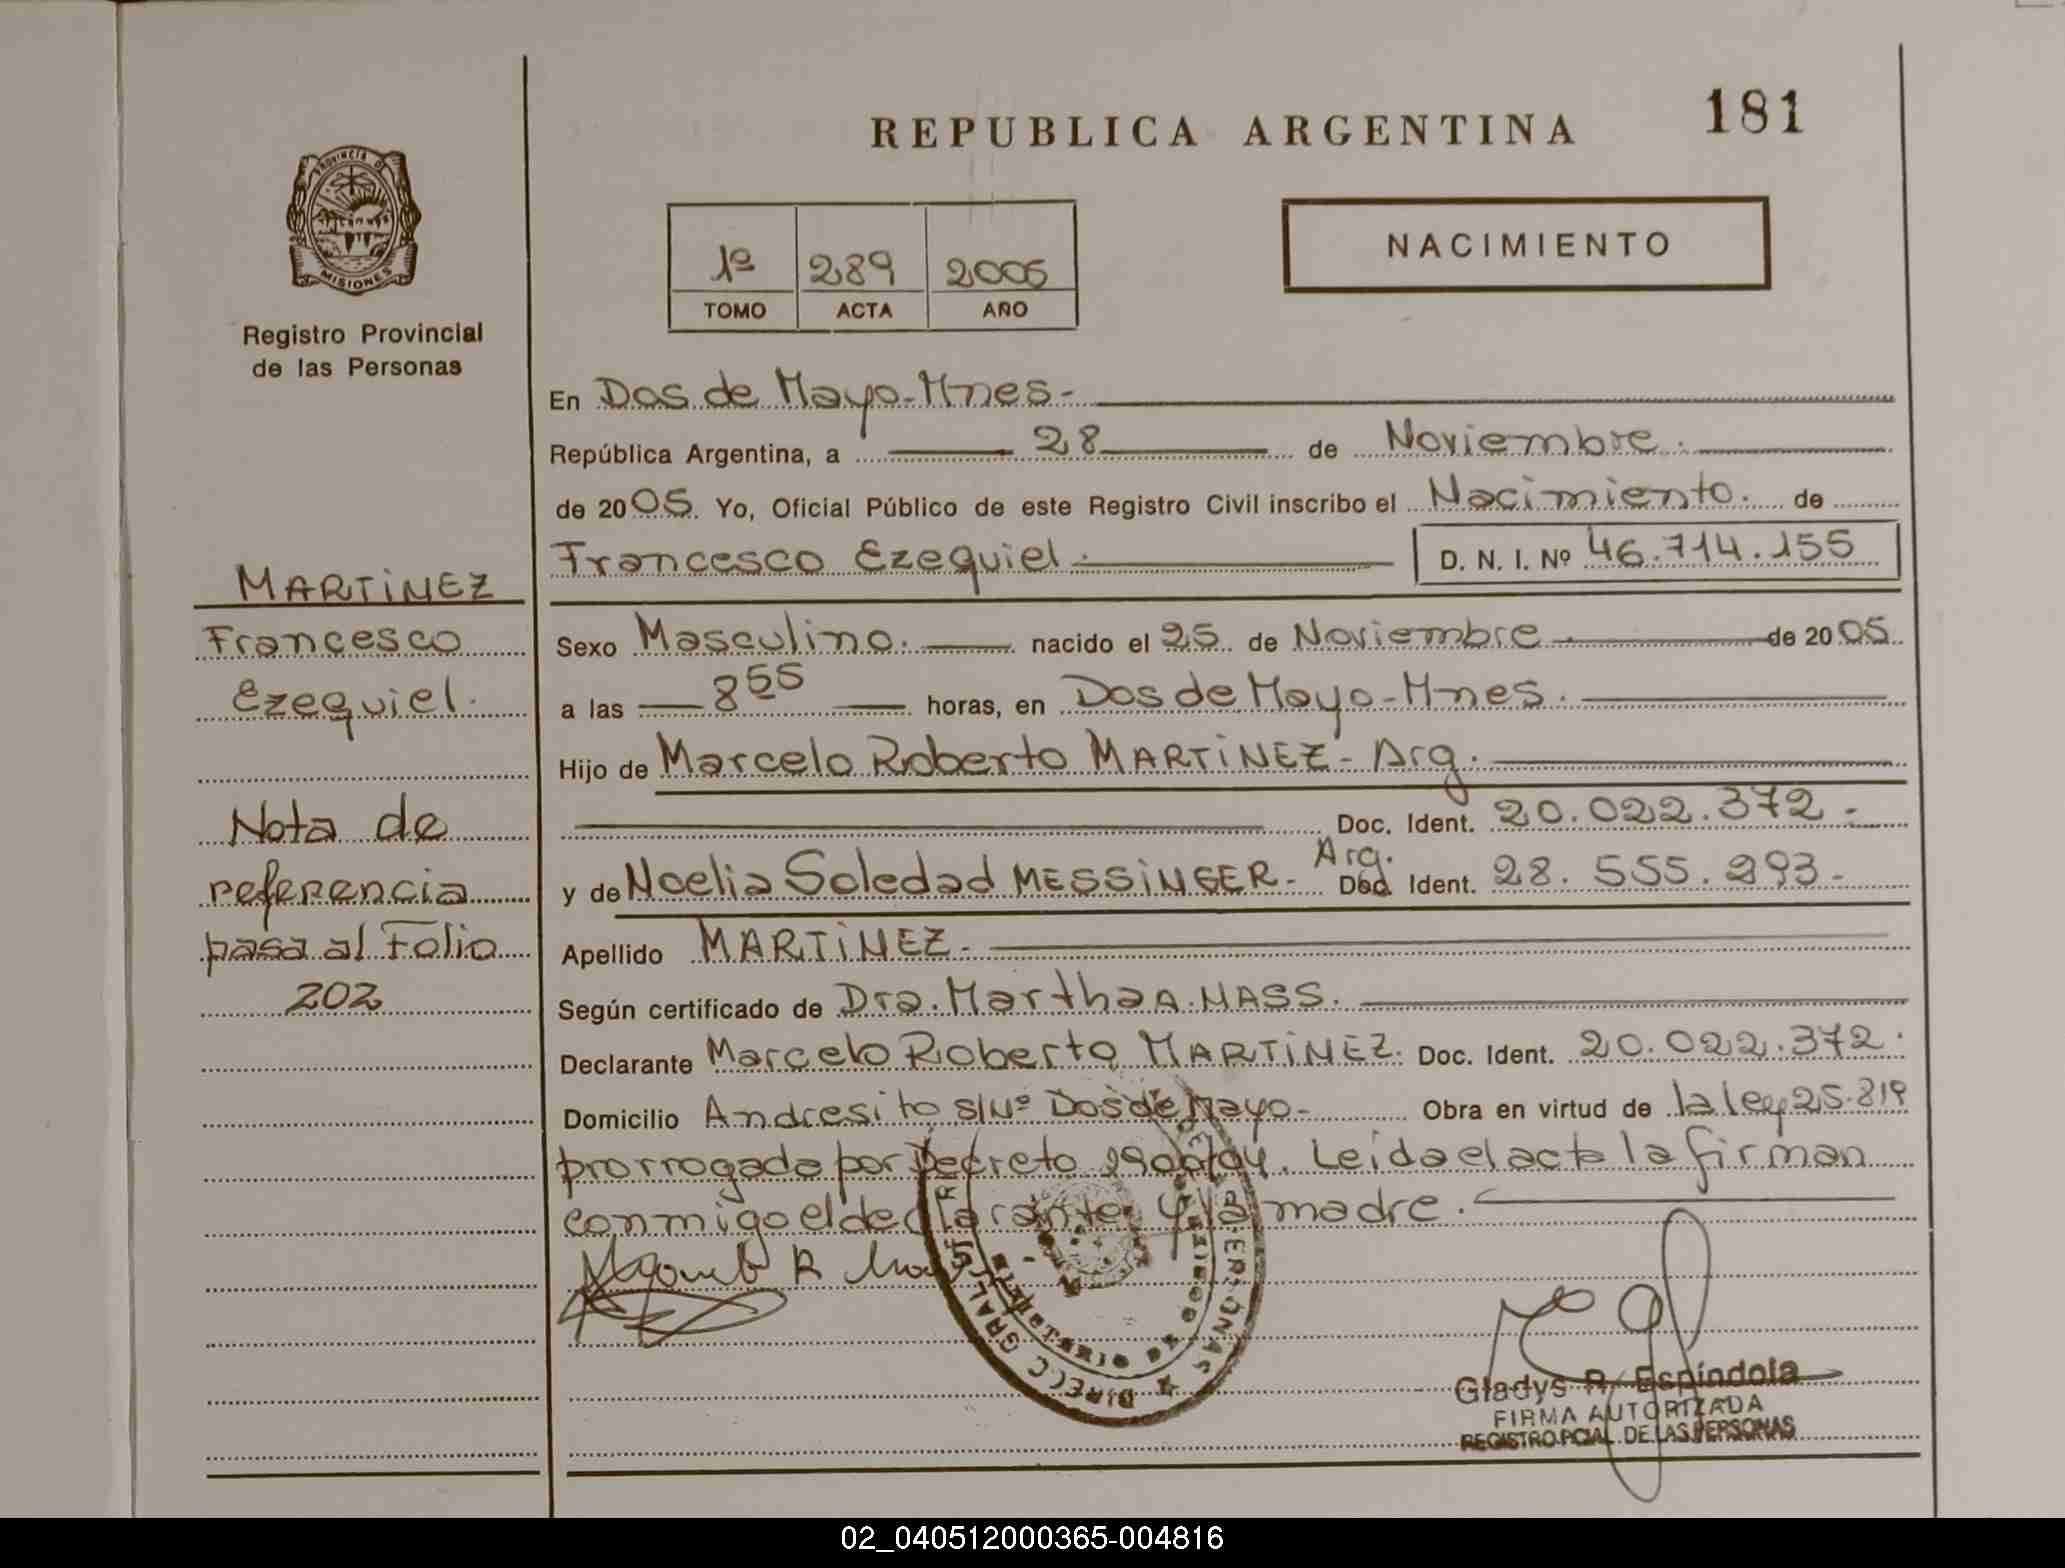 REPUBLICA ARGENTINA 181
PROVINCIA DE
MISIONES
Registro Provincial
de las Personas
NACIMIENTO
1º 289 2005
TOMO ACTA AÑO
En Dos de Mayo-Mnes-
República Argentina, a 28 de Noviembre.
de 2005. Yo, Oficial Público de este Registro Civil inscribo el Nacimiento. de
Francesco Ezequiel. D. N. I. Nº 46.714.155
MARTiNEZ
Francesco
Ezequiel.
Nota de
referencia
pasa al Folio
202
Sexo Masculino. nacido el 25 de Noviembre. de 2005.
a las 8 55 horas, en Dos de Mayo-Mnes.
Hijo de Marcelo Roberto MARTiNEZ- Arg.
Doc. Ident. 20.022.372.-
y de Noelia Soledad MESSiNGER.- Arg. Doc. Ident. 28.555.293.-
Apellido MARTiNEZ.-
Según certificado de Dra. Martha A. MASS.
Declarante Marcelo Roberto MARTiNEZ. Doc. Ident. 20.022.372.
Domicilio Andresito s/Nº Dos de Mayo.- Obra en virtud de la ley 25.819
prorrogada por Decreto 2900/04. Leída el acta la firman
conmigo el declarante y la madre.
DIRECC GRAL
MINISTERIO DE GOBIERNO
Gladys R. Espíndola
FIRMA AUTORIZADA
REGISTRO PCIAL. DE LAS PERSONAS
02_040512000365-004816